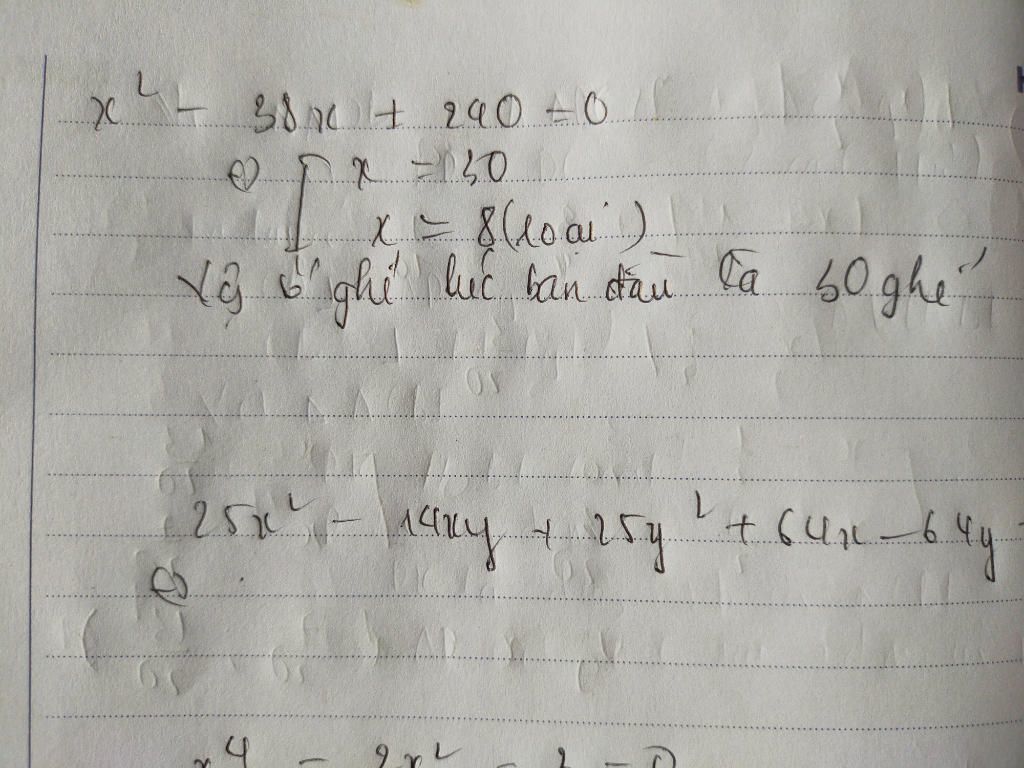 x² - 38x + 240 = 0
⇔ [ x = 30
x = 8 (loại)
Vậy số ghế lúc ban đầu là 30 ghế
25x² - 14xy + 25y² + 64x - 64y
⇔
x⁴ - 2x² - 3 = 0